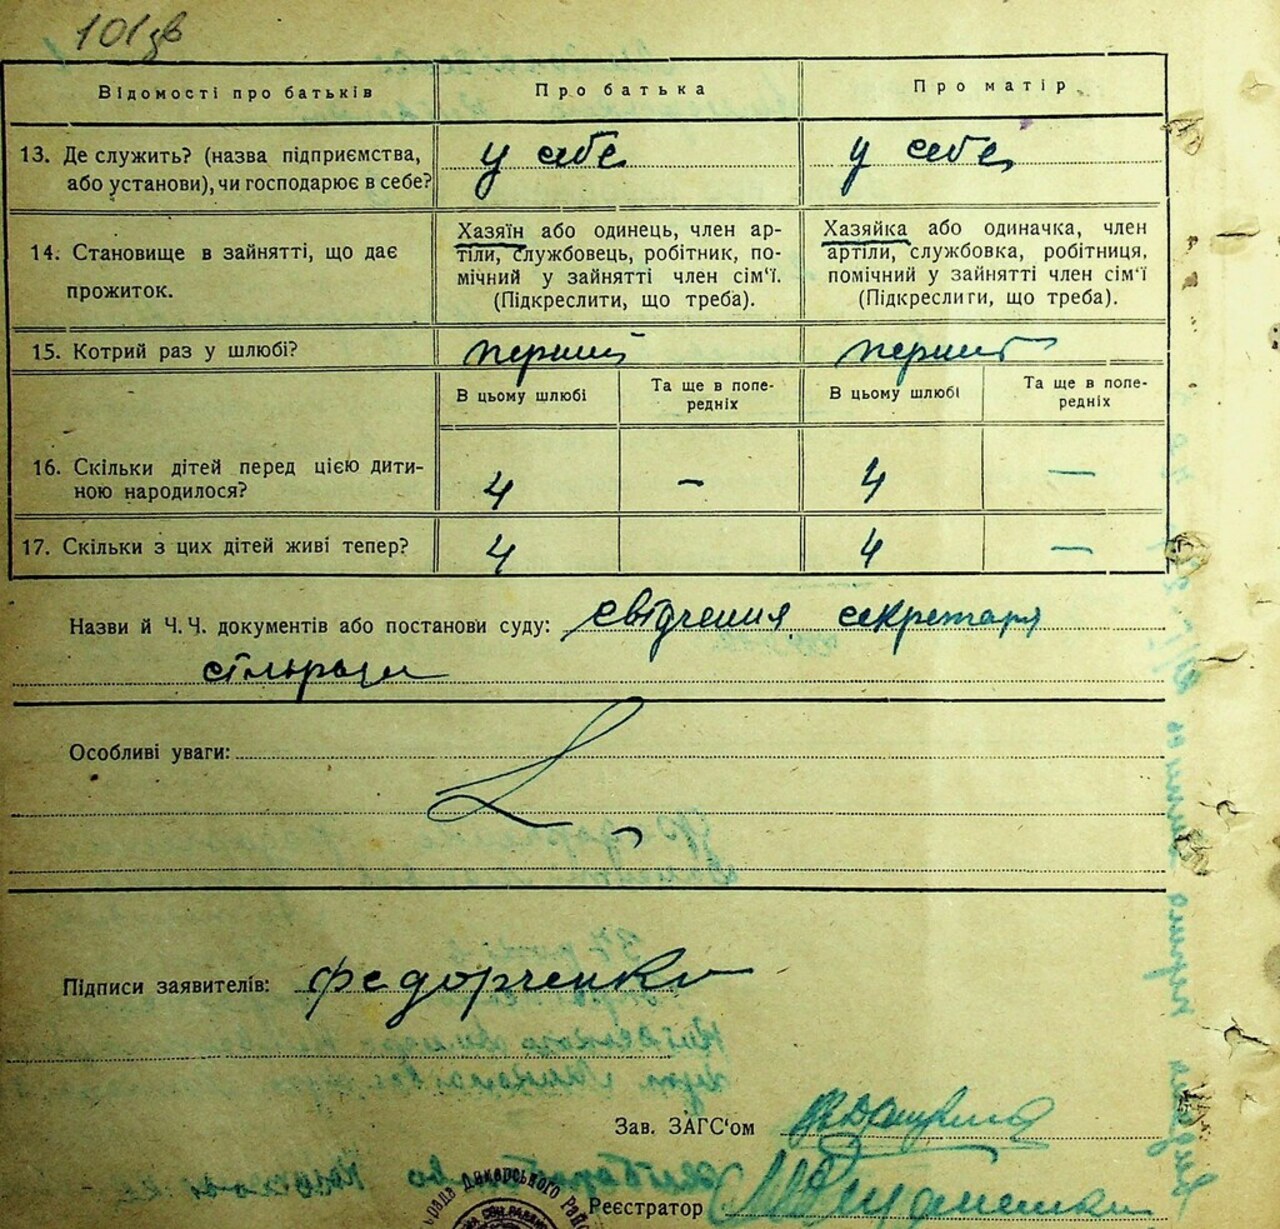 101зв
Відомості про батьків
Про батька
Про матір
13. Де служить? (назва підприємства,
або установи), чи господарює в себе?
у себе
у себе
14. Становище в зайнятті, що дає
прожиток.
Хазяїн або одинець, член ар-
тіли, службовець, робітник, по-
мічний у зайнятті член сім'ї.
(Підкреслити, що треба).
Хазяйка або одиначка, член
артіли, службовка, робітниця,
помічний у зайнятті член сім'ї
(Підкреслити, що треба).
15. Котрий раз у шлюбі?
перший
перший
В цьому шлюбі
Та ще в попе-
редніх
В цьому шлюбі
Та ще в попе-
редніх
16. Скільки дітей перед цією дити-
ною народилося?
4
-
4
—
17. Скільки з цих дітей живі тепер?
4
4
—
Назви й Ч.Ч. документів або постанови суду: свідчення секретаря
сільради
Особливі уваги:
Підписи заявителів: Федорченко
Зав. ЗАГС'ом
Реєстратор
Димерського Рай